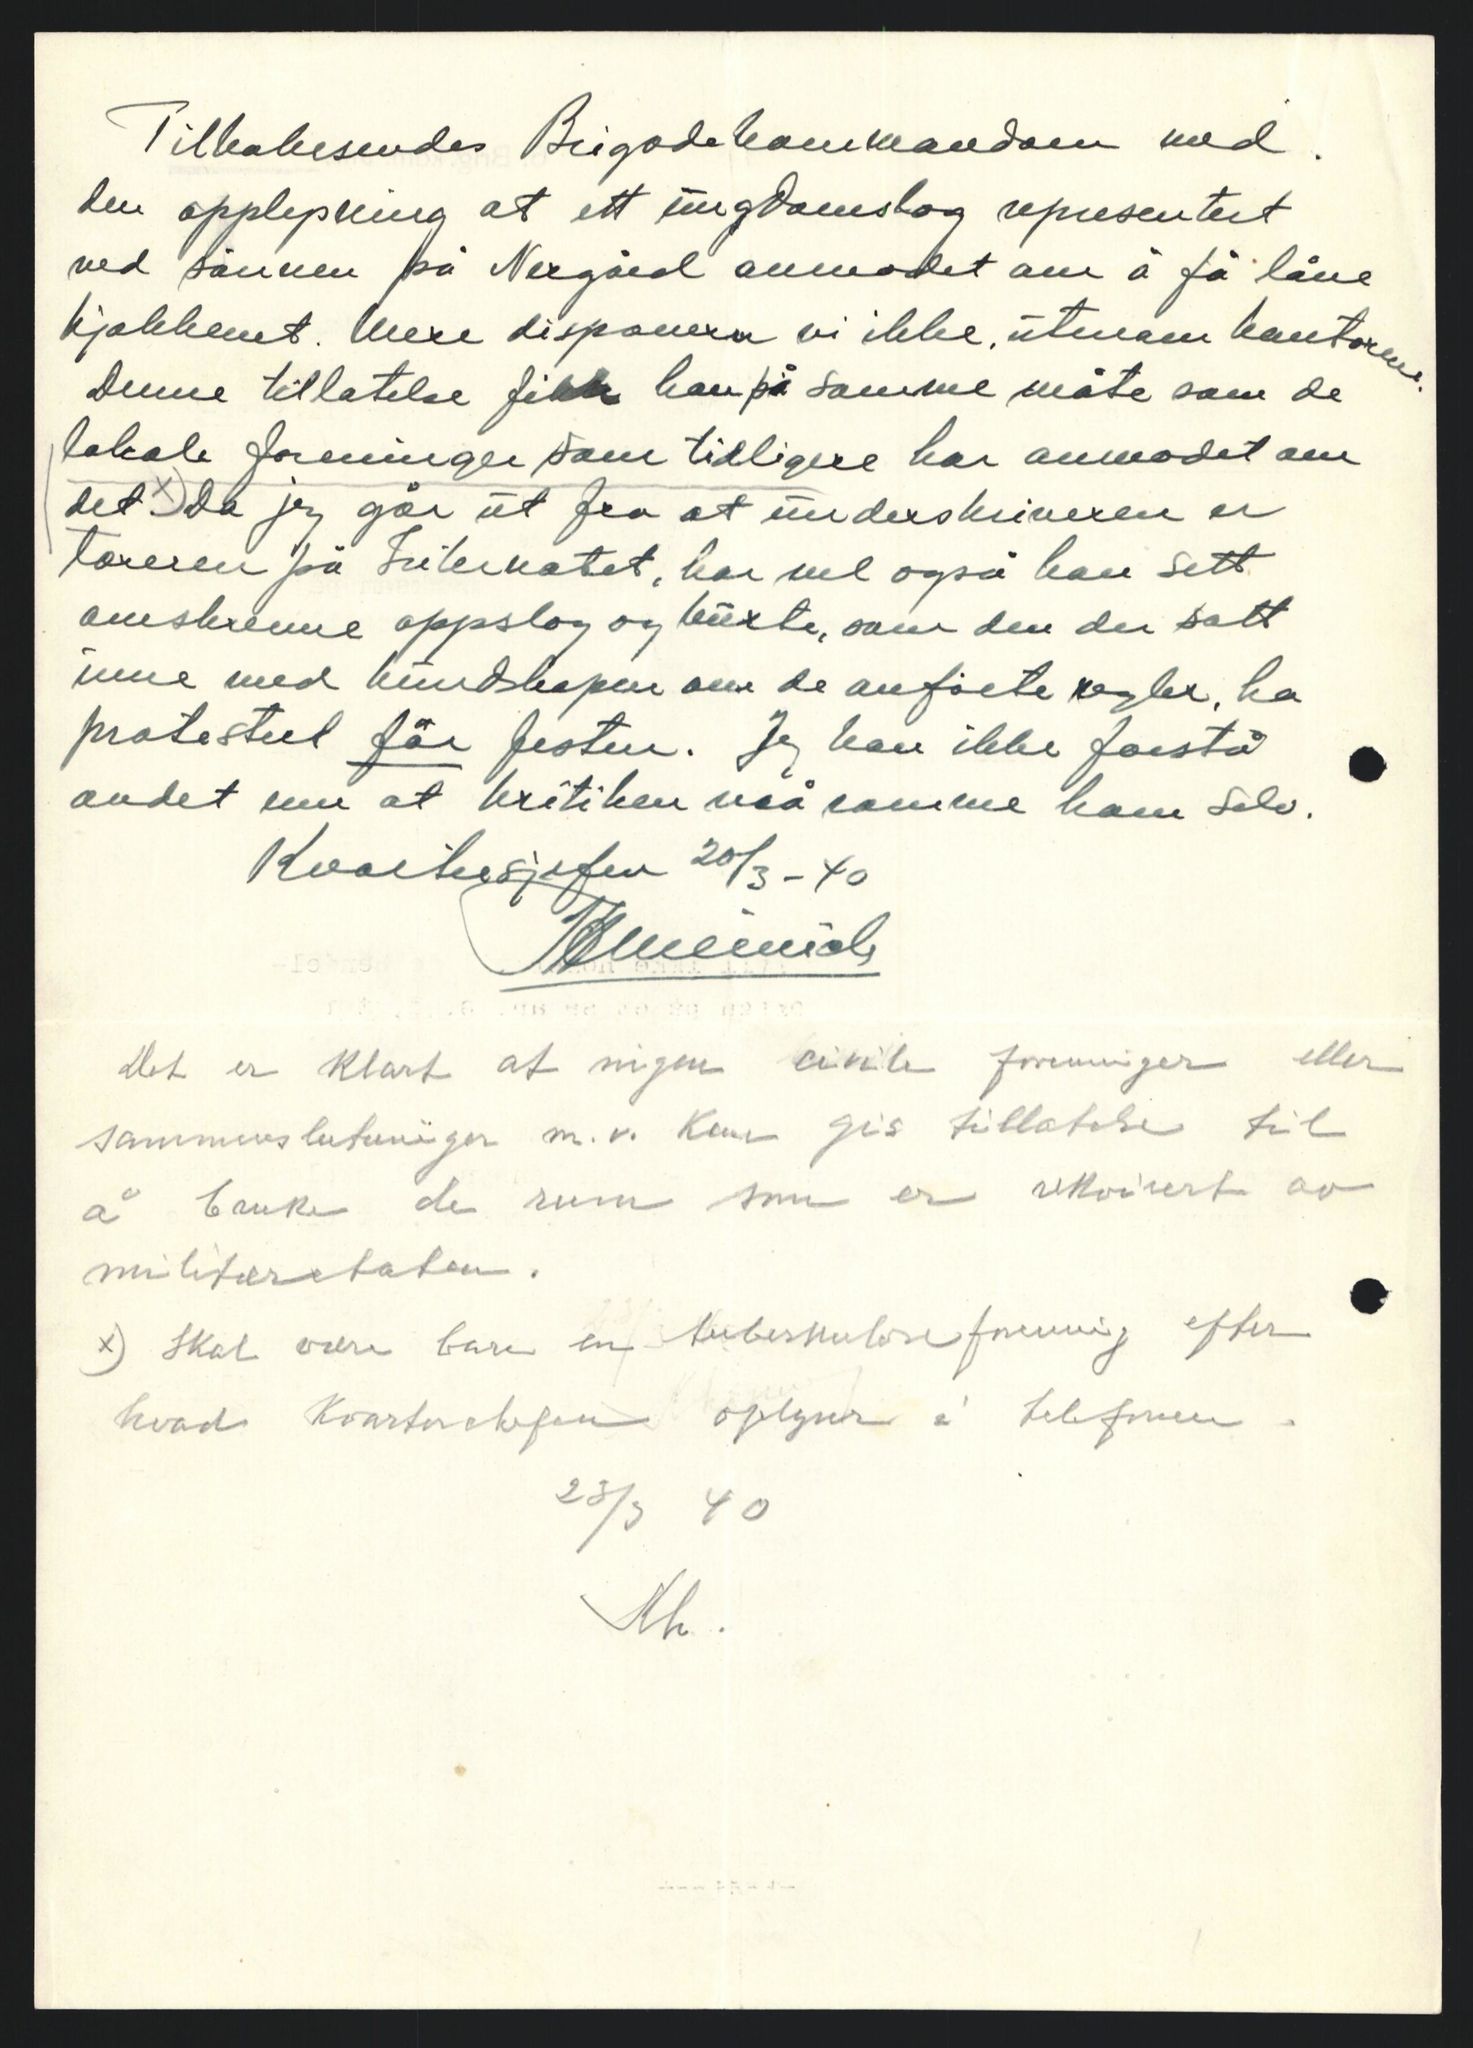 Tilbakesendes Brigadekommandoen med
den opplysning at ett ungdomslag representert
ved sønnen på Nergård anmodet om å få låne
kjøkkenet. Mere disponerer vi ikke, utenom kontorene.
Denne tillatelse fikk han på samme måte som de
lokale foreninger som tidligere har anmodet om
det x) Da jeg går ut fra at underskriveren er
læreren på Internatet, har vel også han sett
omskrevne oppslag og burte, som den der satt
inne med kundskapen om de anførte regler, ha
protestert før festen. Jeg kan ikke forstå
andet enn at kritiken må ramme ham selv.
Kvartersjefen 20/3-40
Det er klart at ingen civile foreninger eller
sammenslutninger m.v. kan gis tillatelse til
å bruke de rum som er rekvirert av
militæretaten.
x) Skal være bare en tuberkuloseforening efter
hvad Kvarterchefen oplyser i telefonen.
23/3 40
Kh.